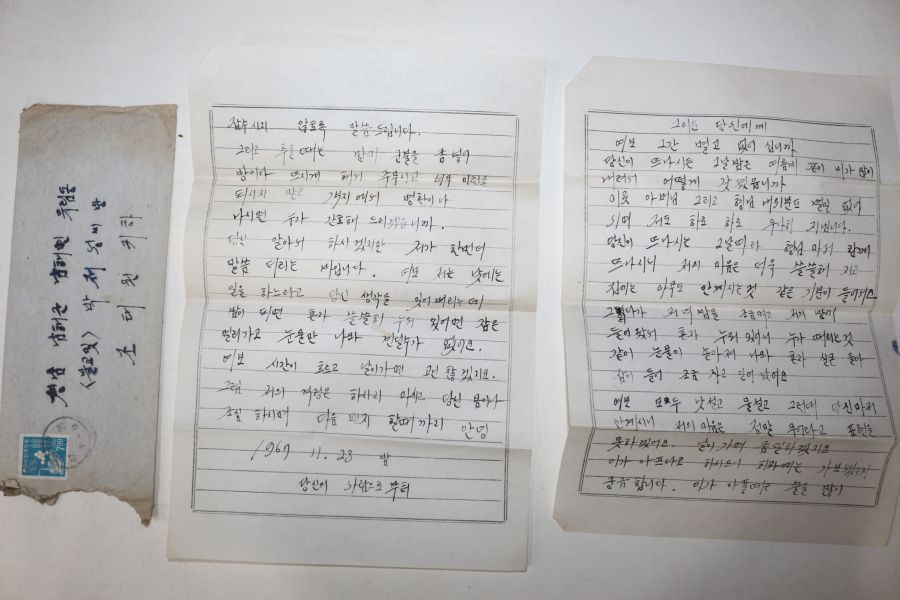 경남 남해군 남해면
조 태 원 귀하
잡수시지 않토록 말씀드립니다.
그리고 추울때는 불을 좀 넣어
방이나 뜨시게 해서 주무시고 너무
마시지 말고 객지에서 병환이나
나시면 누가 간호해 드리겠읍니까
당신 알아서 하시겠지만 저가 한번더
말씀 더리는 바입니다. 여보 저는 낮에는
일을 하느라고 당신 생각을 잊어버리는데
밤이 되면 혼자 쓸쓸히 누워 있어면 잠은
멀리가고 눈물만 나와 견딜수가 없어요.
여보 시간이 흐르고 날이가면 괜찮겠지요.
그럼 저의 걱정은 하시지 마시고 당신 몸이나
조심 하시며 다음 편지 할때까지 안녕
1967 11. 23 밤
당신의 사람으로부터
그리운 당신에게
여보 그간 별고 없어 십니까
당신이 뜨나시는 그날밤은 여름게 같이 비가 많이
내려서 어떻게 갓읍니까
이곳 아버님 그리고 형님 내외분도 별일 없어
시며 저도 하로 하로 무사히 지냅니다.
당신이 뜨나시는 그날따라 형님 마저 함께
뜨나시니 저의 마음은 더욱 쓸쓸해 지고
집에는 아무도 안계시는것 같은 기분이 들어서요
저녁 밥을 조금먹고 저의 방에
들어 와서 혼자 누워 있어니 누가 때리는것
같이 눈물이 쏟아져 나와 혼자 실큰 울다
잠이 들어 조금 자고 일어 났어요
여보 모두 낫설고 물설고 그런데 당신마저
안계시니 저의 마음은 정말 무어라고 표현을
못하겠어요. 날이 가면 좀 덜하겠지요
이가 아프다고 하시드니 치과에는 가보셨는지
궁금 합니다. 이가 아플때는 술을 많이